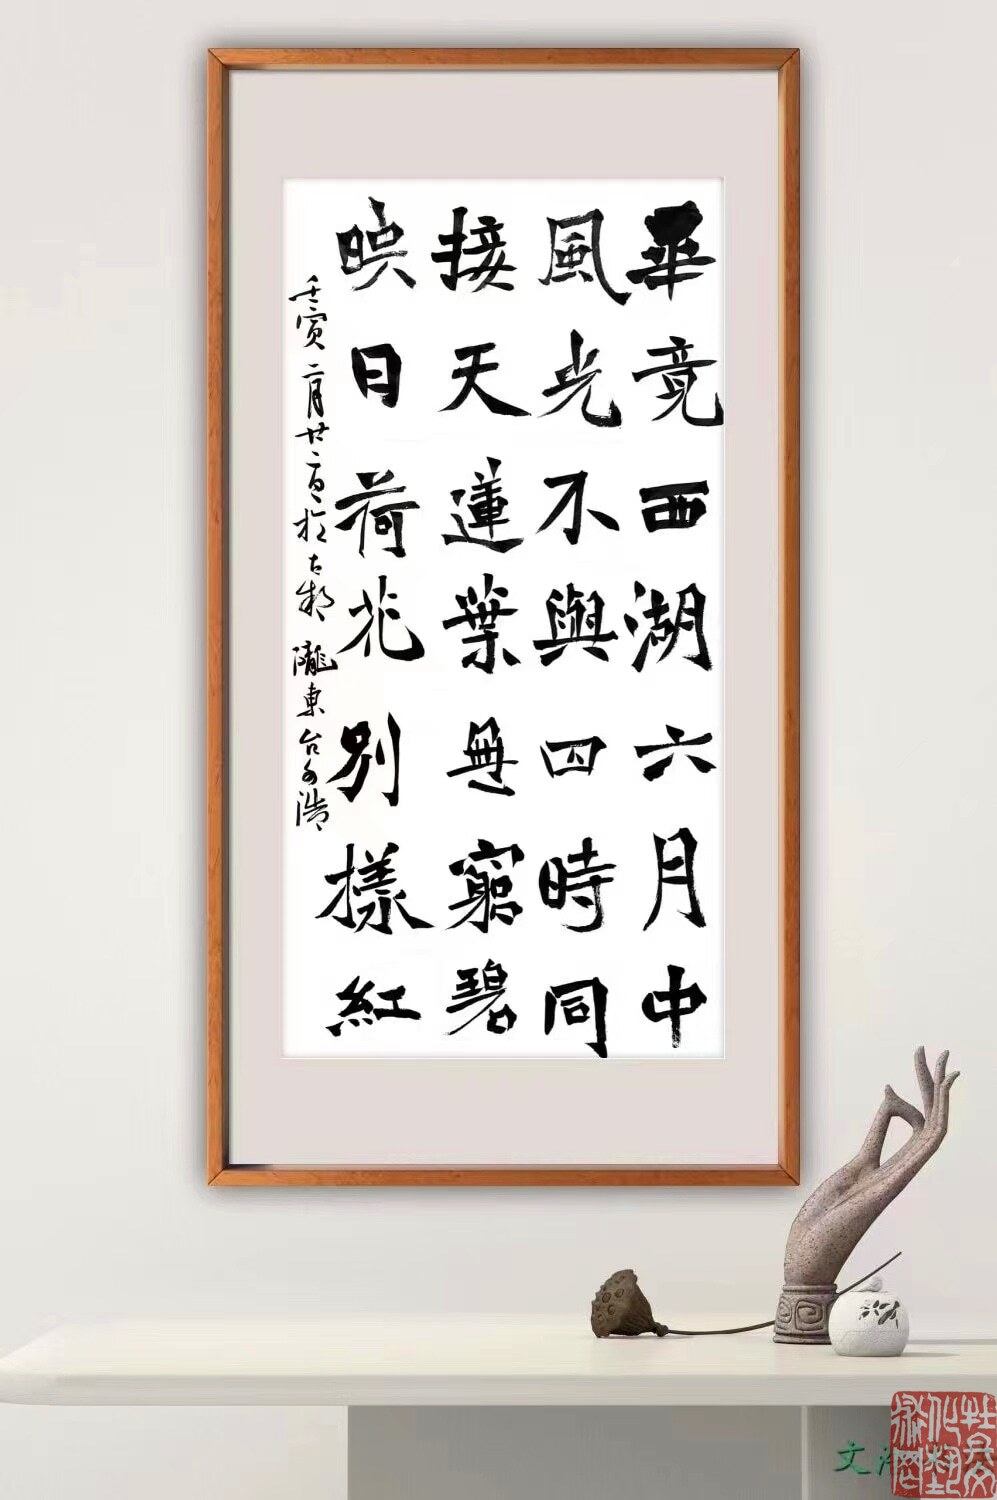 畢竟西湖六月中
風光不與四時同
接天蓮葉無窮碧
映日荷花別樣紅
壬寅二月廿二日於古 隴東 浩
文